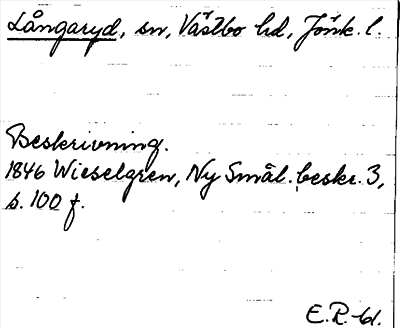 Långaryd, sn, Västbo hd, Jönk. l.
Beskrivning.
1846 Wieselgren, Ny Smål. beskr. 3,
s. 100 f.
E.R-bl.